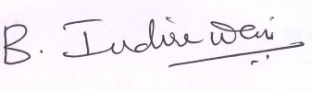 B. Indira Devi